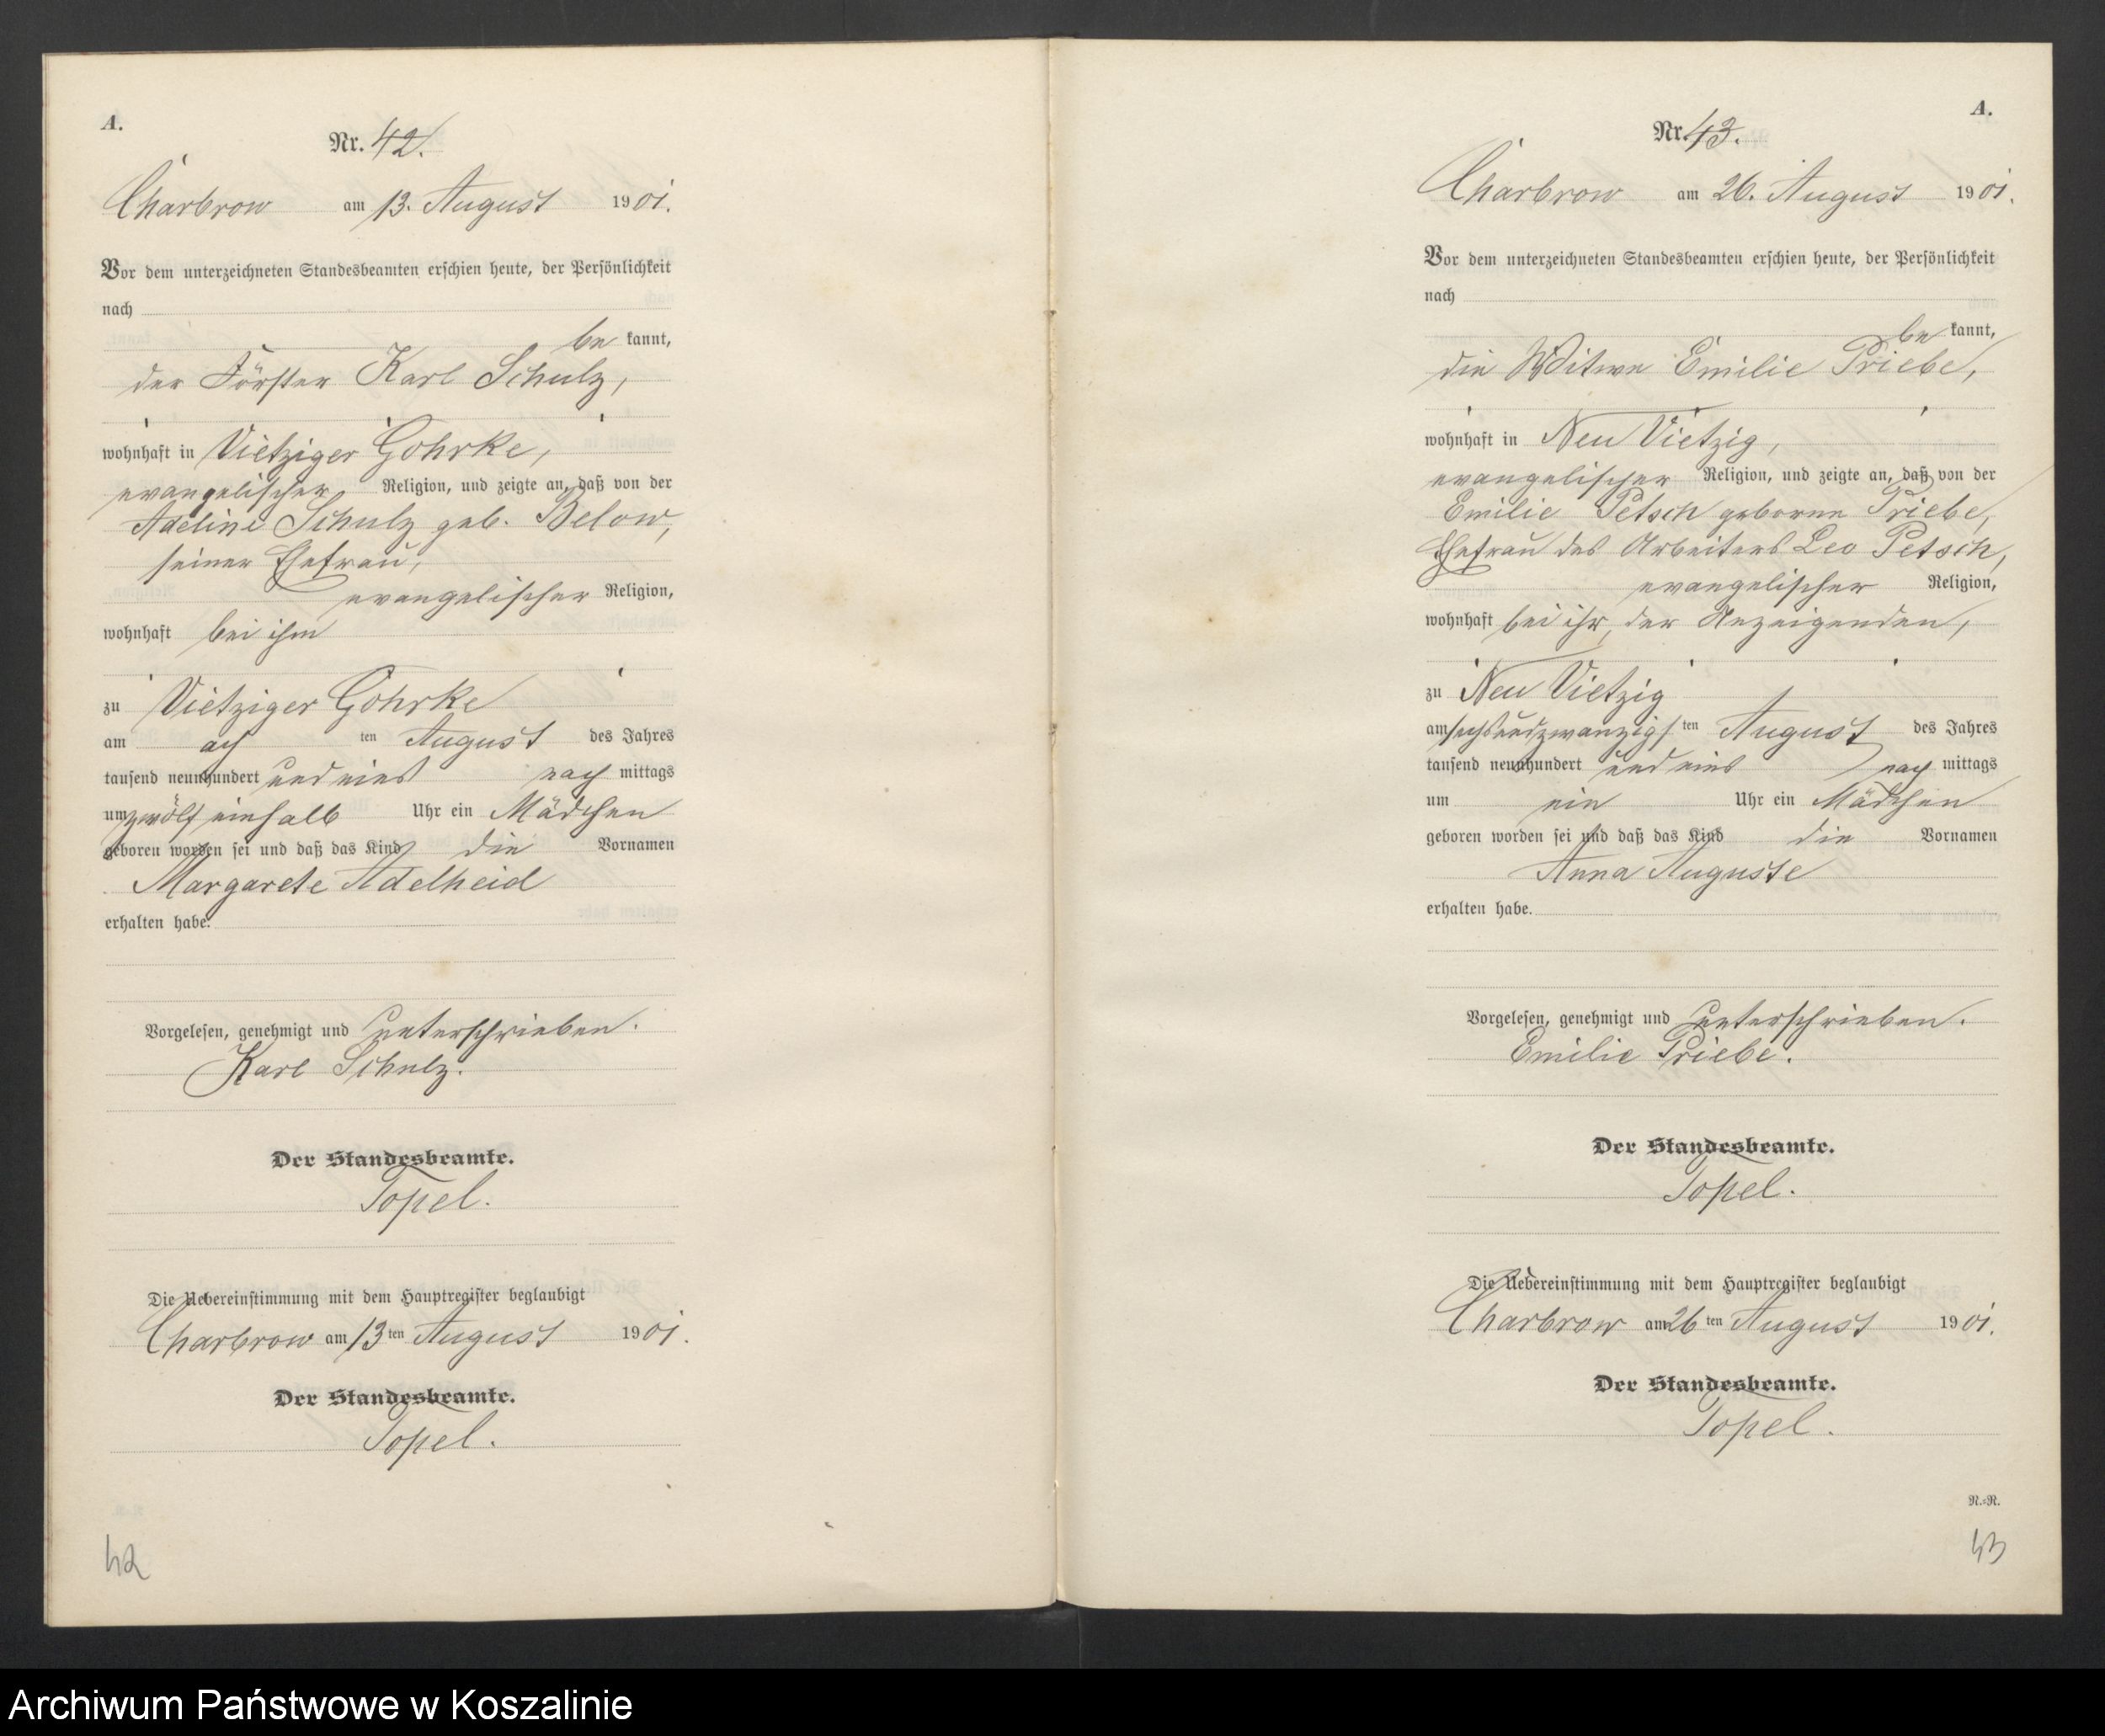 A.
Nr. 42.
Charbrow am 13. August 1901.
Vor dem unterzeichneten Standesbeamten erschien heute, der Persönlichkeit
nach
be kannt,
der Förster Karl Schulz,
wohnhaft in Vietziger Gohrke,
evangelischer Religion, und zeigte an, daß von der
Adeline Schulz geb. Below,
seiner Ehefrau,
evangelischer Religion,
wohnhaft bei ihm
zu Vietziger Gohrke
am ach ten August des Jahres
tausend neunhundert und eins nach mittags
um zwölf einhalb Uhr ein Mädchen
geboren worden sei und daß das Kind die Vornamen
Margarete Adelheid
erhalten habe.
Vorgelesen, genehmigt und unterschrieben.
Karl Schulz.
Der Standesbeamte.
Topel.
Die Uebereinstimmung mit dem Hauptregister beglaubigt
Charbrow am 13 ten August 1901.
Der Standesbeamte.
Topel.
42
A.
Nr. 43.
Charbrow am 26. August 1901.
Vor dem unterzeichneten Standesbeamten erschien heute, der Persönlichkeit
nach
be kannt,
die Witwe Emilie Priebe,
wohnhaft in Neu Vietzig,
evangelischer Religion, und zeigte an, daß von der
Emilie Petsch geborne Priebe,
Ehefrau des Arbeiters Leo Petsch,
evangelischer Religion,
wohnhaft bei ihr, der Anzeigenden,
zu Neu Vietzig
am sechsundzwanzigs ten August des Jahres
tausend neunhundert und eins nach mittags
um ein Uhr ein Mädchen
geboren worden sei und daß das Kind die Vornamen
Anna Auguste
erhalten habe.
Vorgelesen, genehmigt und unterschrieben.
Emilie Priebe.
Der Standesbeamte.
Topel.
Die Uebereinstimmung mit dem Hauptregister beglaubigt
Charbrow am 26 ten August 1901.
Der Standesbeamte.
Topel.
N.-R.
43
Archiwum Państwowe w Koszalinie